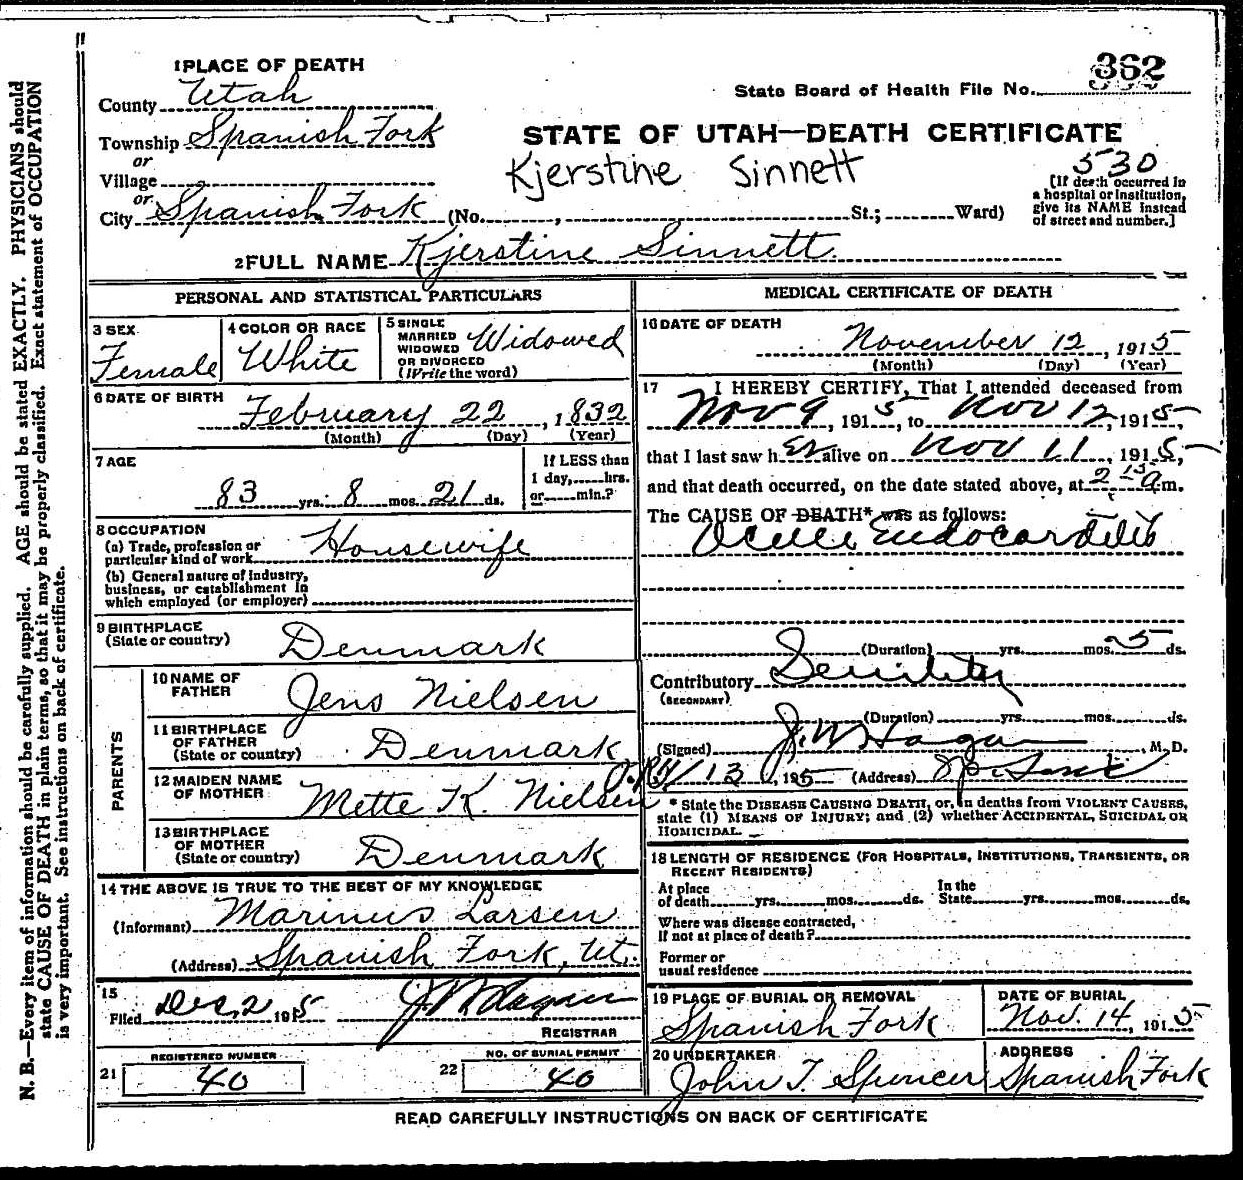 1 PLACE OF DEATH
County Utah
Township Spanish Fork
or
Village
or
City Spanish Fork (No. , St.; Ward)
362
State Board of Health File No.
STATE OF UTAH—DEATH CERTIFICATE
Kjerstine Sinnett
530
[If death occurred in
a hospital or institution,
give its NAME instead
of street and number.]
2 FULL NAME Kjerstine Sinnett.
PERSONAL AND STATISTICAL PARTICULARS
3 SEX
Female
4 COLOR OR RACE
White
5 SINGLE
MARRIED
WIDOWED
OR DIVORCED
(Write the word)
Widowed
6 DATE OF BIRTH
February 22, 1832
(Month) (Day) (Year)
7 AGE
83 yrs. 8 mos. 21 ds.
If LESS than
1 day, hrs.
or min.?
8 OCCUPATION
(a) Trade, profession or
particular kind of work Housewife
(b) General nature of industry,
business, or establishment in
which employed (or employer)
9 BIRTHPLACE
(State or country) Denmark
PARENTS
10 NAME OF
FATHER Jens Nielsen
11 BIRTHPLACE
OF FATHER
(State or country) Denmark
12 MAIDEN NAME
OF MOTHER Mette K. Nielsen
13 BIRTHPLACE
OF MOTHER
(State or country) Denmark
14 THE ABOVE IS TRUE TO THE BEST OF MY KNOWLEDGE
(Informant) Marinus Larsen
(Address) Spanish Fork, Ut.
15
Filed Dec 2 1915 J W Hagan
REGISTRAR
REGISTERED NUMBER
21 40
NO. OF BURIAL PERMIT
22 40
MEDICAL CERTIFICATE OF DEATH
16 DATE OF DEATH
November 12, 1915
(Month) (Day) (Year)
17 I HEREBY CERTIFY, That I attended deceased from
Nov 9, 1915, to Nov 12, 1915,
that I last saw her alive on Nov 11, 1915,
and that death occurred, on the date stated above, at 2 15 a m.
The CAUSE OF DEATH* was as follows:
Acute Endocarditis
(Duration) yrs. mos. 5 ds.
Contributory Senility
(SECONDARY)
(Duration) yrs. mos. ds.
(Signed) J. W Hagan, M. D.
11/13, 1915 (Address) Sp. Fork
* State the DISEASE CAUSING DEATH, or, in deaths from VIOLENT CAUSES,
state (1) MEANS OF INJURY; and (2) whether ACCIDENTAL, SUICIDAL OR
HOMICIDAL.
18 LENGTH OF RESIDENCE (FOR HOSPITALS, INSTITUTIONS, TRANSIENTS, OR
RECENT RESIDENTS)
At place
of death yrs. mos. ds.
In the
State yrs. mos. ds.
Where was disease contracted,
If not at place of death?
Former or
usual residence
19 PLACE OF BURIAL OR REMOVAL
Spanish Fork
DATE OF BURIAL
Nov. 14, 1915
20 UNDERTAKER
John T. Spencer
ADDRESS
Spanish Fork
READ CAREFULLY INSTRUCTIONS ON BACK OF CERTIFICATE
N. B.—Every item of information should be carefully supplied. AGE should be stated EXACTLY. PHYSICIANS should
state CAUSE OF DEATH in plain terms, so that it may be properly classified. Exact statement of OCCUPATION
is very important. See instructions on back of certificate.